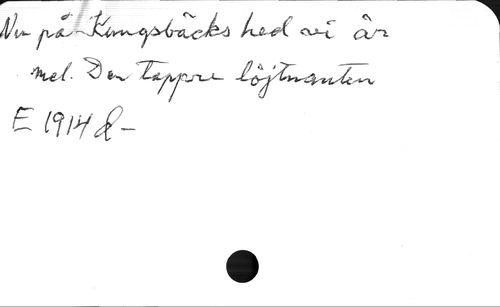 Nu på Kungsbäcks hed vi är
mel. Den tappre löjtnanten
E 1914 d-